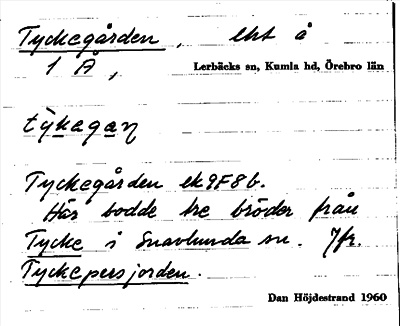 Tyckegården, ekt å
1 Å, Lerbäcks sn, Kumla hd, Örebro län
Tyckegården ek 9F8b.
Här bodde tre bröder från
Tycke i Snavlunda sn. Jfr.
Tyckepersjorden.
Dan Höjdestrand 1960